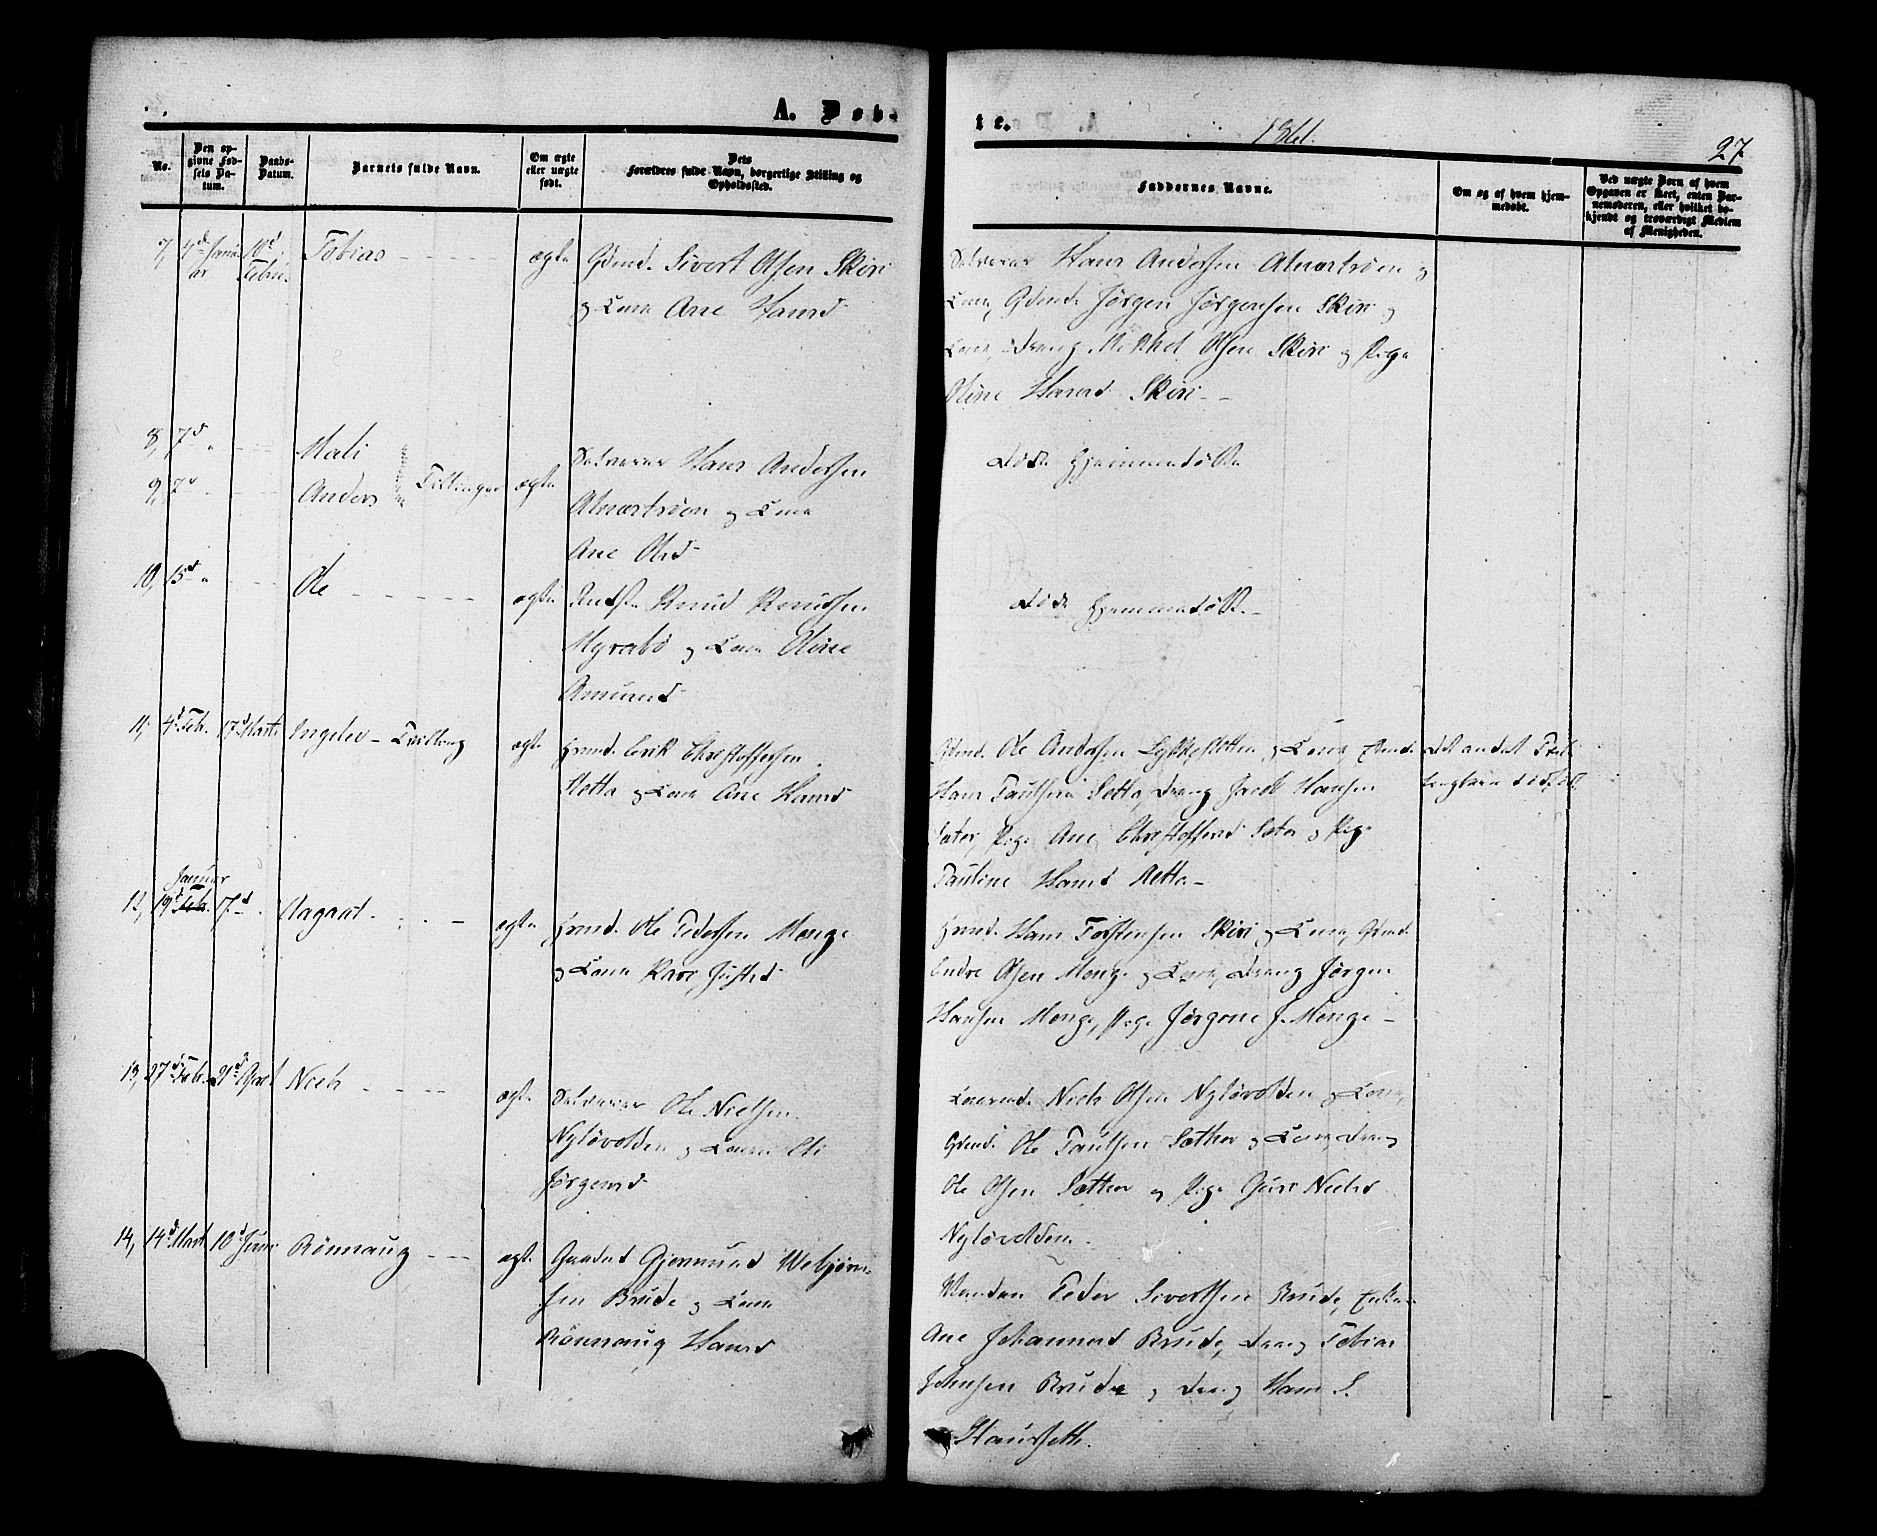 A. Døb-
te.
1861.
27
No.
Den op-
givne Fød-
sels Da-
tum.
Daabs-
Datum.
Barnets fulde Navn.
Om ægte
eller uægte
født.
Dets
Forældres fulde Navn, borgerlige Stilling og
Opholdssted.
Faddernes Navne.
Om og af hvem hjem-
medøbt.
Ved uægte Børn af hvem
Opgaven er skeet, enten Bar-
nemoderen, eller hvilket be-
kjendt og troværdigt Medlem
af Menigheden.
7, 4d Janu-
ar
10d
Febru.
Tobias
ægte
Gdmd. Sivert Olsen Skiri
og Kone Ane Hansd
Hans Andersen Alnæstrøen og
Kone, Gdmd. Jørgen Jørgensen Skiri og
Kone, Dreng Mikkel Olsen Skiri og Pige
Oline Hansd Skiri
8, 7d "
Mali
9, 7d "
Anders
Tvillinger
ægte
Hans Andersen
Alnæstrøen og Kone
Ane Olsd
Døde Hjemmedøbte
10, 15d "
Ole
ægte
Knud Knudsen
Myrabø og Kone Oline
Amunds
Død Hjemmedøbt
11, 4d Feb. 17d Marts
Ingelev - Tvilling
ægte
Grmd. Erik Christoffersen
Aetta og Kone Ane Hansd
Gdmd. Ole Andersen Lykkeslotten og Kone,
Hans Paulsen Setta, Dreng Jacob Hansen
Sæter, Pige Ane Christoffersd Sæter og Pige
Pauline Hansd Aetta
Det andet Tvil-
lingbarn dødf.
12, 19d Feb. 17d
Januar
Aagaat
ægte
Grmd. Ole Pedersen Monge
og Kone Kari Justsd
Grmd. Hans Torstensen Skiri og Kone, Gdmd.
Endre Olsen Monge og Kone, Dreng Jørgen
Hansen Monge, Pige Jørgine J. Monge
13, 27d Febr. 21d April
Niels
ægte
Ole Nielsen
Nyløvolden og Kone Eli
Jørgensd
Niels Olsen Nyløvolden og Kone,
Gdmd. Ole Paulsen Sæther og Kone, Dreng
Ole Olsen Sæther og Pige Guri Nielsd
Nyløvolden.
14, 14d Mart 10d Juni
Rønnaug
ægte
Gjermund Webjørn-
sen Brude og Kone
Rønnaug Hansd
Peder Sivertsen Brude, Enke
Ane Johannesd Brude, Dreng Tobias
Johnsen Brude og Dreng Hans S.